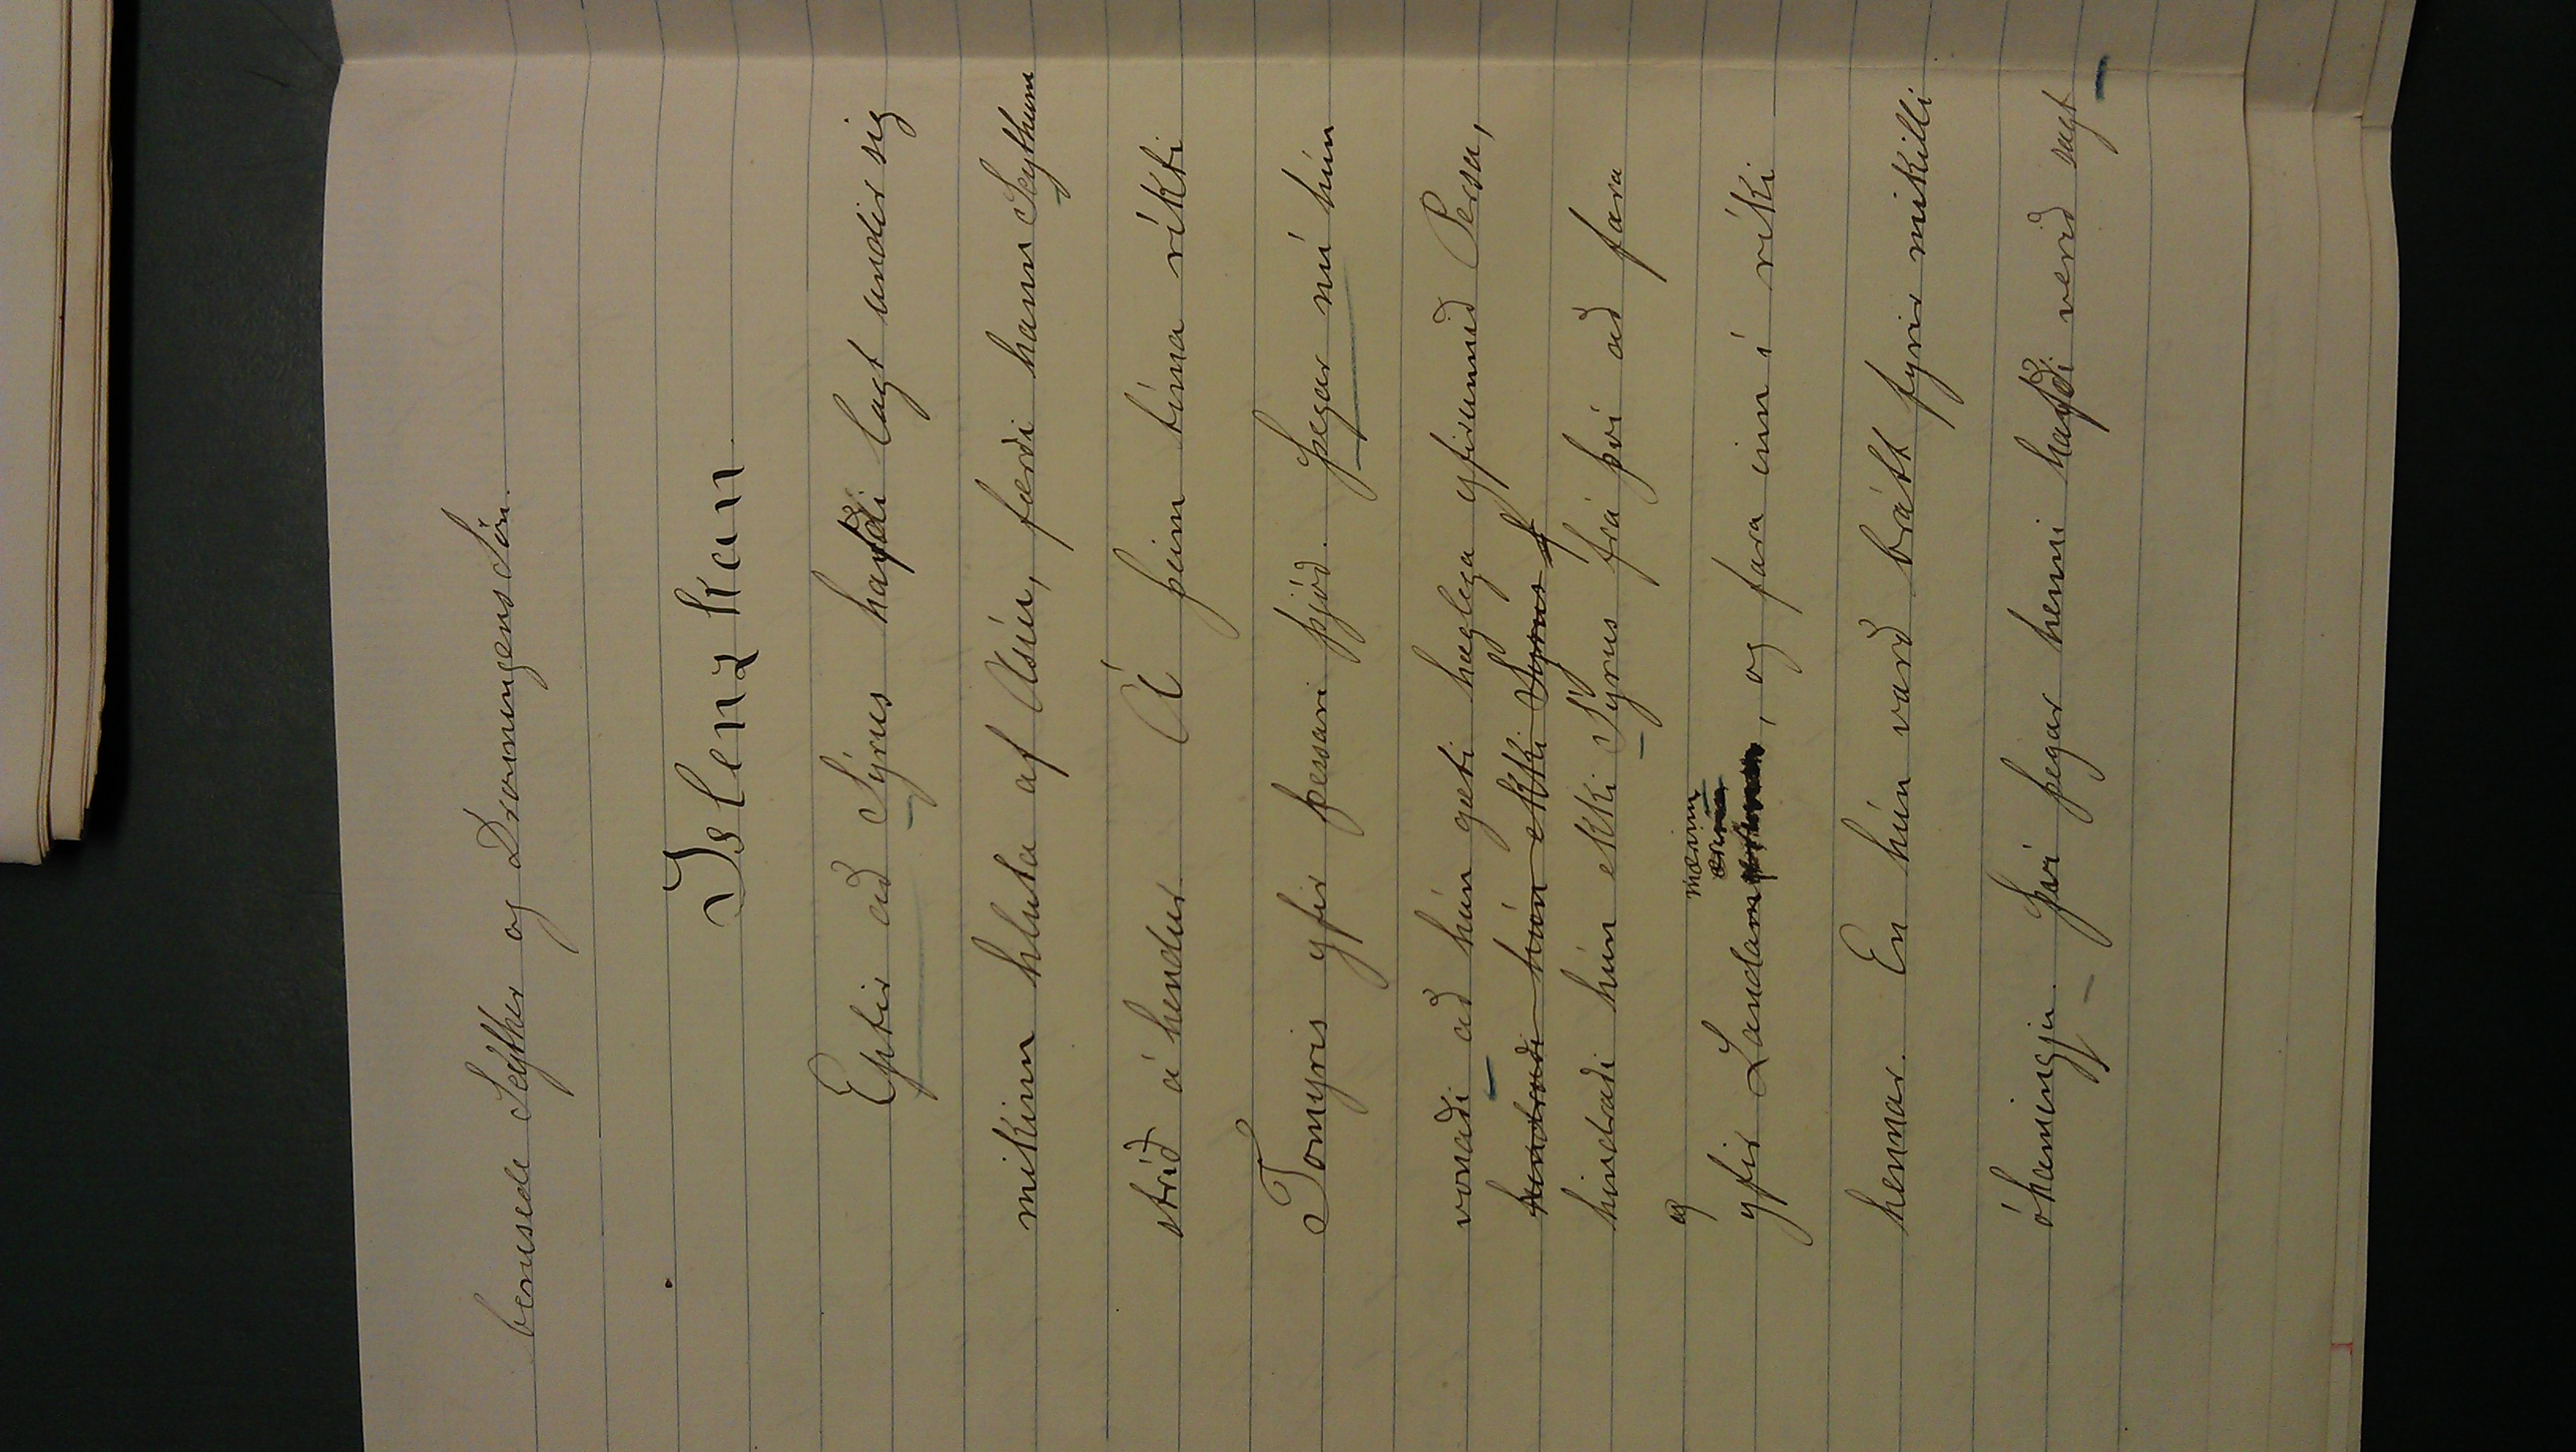 berusede Scyther og Dronningens Sön.
Islenzkan
Eptir að Sýrus hafði lagt undir sig
mikinn hluta af Asíu, færði hann Scythum
stríð á hendur. Á þeim tíma ríkti
Tomyris yfir þessari þjóð. Þegar nú hún
vonaði að hún gæti hæglega yfirunnið Persa,
hindraði hún ekki Syrus f
hindraði hún ekki Sýrus frá því að fara
og mærin
yfir Landam , og fara inn í ríki
hennar. En hún varð brátt fyrir mikilli
óhamingju. Því þegar henni hafði verið sagt